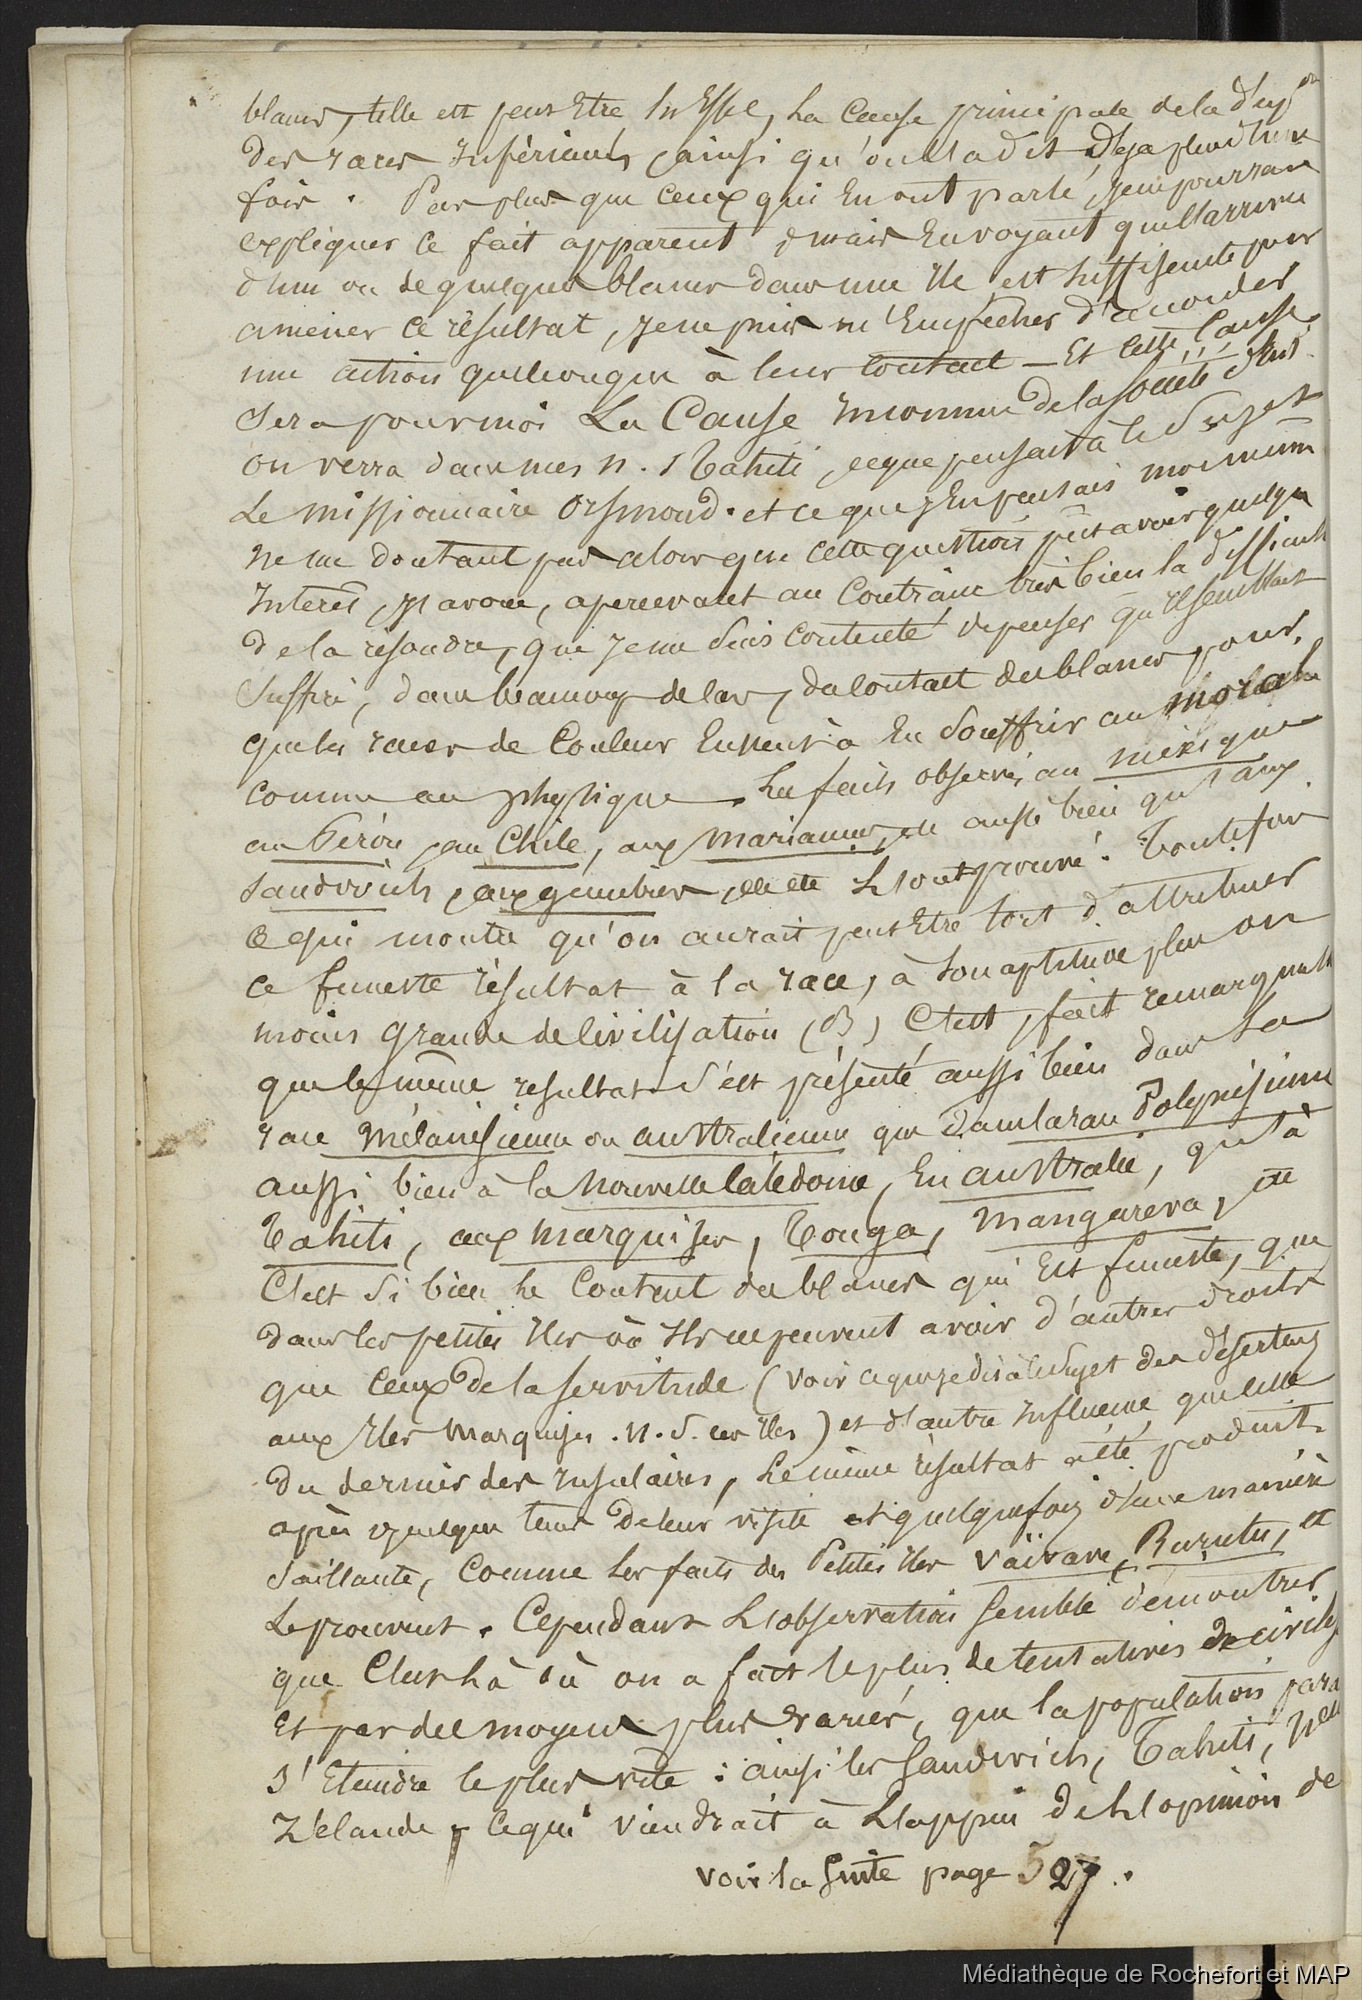 blancs, telle est peut Etre En Effet, La Cause principale de la dép.on
des races Inférieures, ainsi qu'on l'a dit Déja plus d'une
fois. Pas plus que ceux qui En ont parlé, je ne pourrais
expliquer Ce fait apparent, mais En voyant que l'arrivée
d'un ou de quelques blancs dans une Ile est suffisante pour
amener Ce résultat, je ne puis m'Empêcher d'accorder
une action quelconque à leur Contact — Et Cette Cause
sera pour moi La Cause Inconnue de la Société
on verra dans mes n. s Tahiti, ce que pensait à le Sujet
Le missionnaire Orsmond. et ce que j'En pensais moi même
ne me doutant pas alors que cette question pût avoir quelque
Intérêt, j'avoue, apercevant au Contraire très bien la difficulté
de la résoudre, que je me suis contenté de penser qu'il semblait
Suffire, dans beaucoup de Cas, du Contact des blancs pour
que les races de Couleur Eussent à En Souffrir au moral
comme au physique. Les faits observés au Méxique
au Pérou, au Chile, aux Mariannes, etc aussi bien qu'aux
Sandwich, aux gambier, etc etc L'ont prouvé. Toutefois
Ce qui montre qu'on aurait peut Etre tort d'attribuer
Ce funeste résultat à la race, à Son aptitude plus ou
moins grande de Civilisation (B) C'est, fait remarquable
que le même résultat s'est présenté aussi bien dans La
race Mélanésienne ou australienne que dans la race Polynésienne
aussi bien à la Nouvelle Calédonie, En australie, qu'à
Tahiti, aux Marquises, Tonga, Mangaréva, etc
C'est Si bien le Contact des blancs qui Est funeste, que
dans les petites Iles où Ils ne peuvent avoir d'autres droits
que Ceux de la servitude (voir ce que je dis à le Sujet des déserteurs
aux Iles Marquises. n. s. ces Iles) et d'autre Influence que celle
du dernier des Insulaires, Le même résultat a été produit
après quelque tems de leur visite et quelquefois d'une manière
Saillante, Comme Les faits des Petites Iles Vaïvave, Rurutu, etc
Le prouvent. Cependant L'observation semble démontrer
que C'est là où on a fait le plus de tentatives de civilis
Et par des moyens plus variés, que la population para
S'Eteindre le plus vite : ainsi les Sandwich, Tahiti, Nelle
Zélande, Ce qui viendrait à L'appui de L'opinion de
voir la Suite page 527.
Médiathèque de Rochefort et MAP